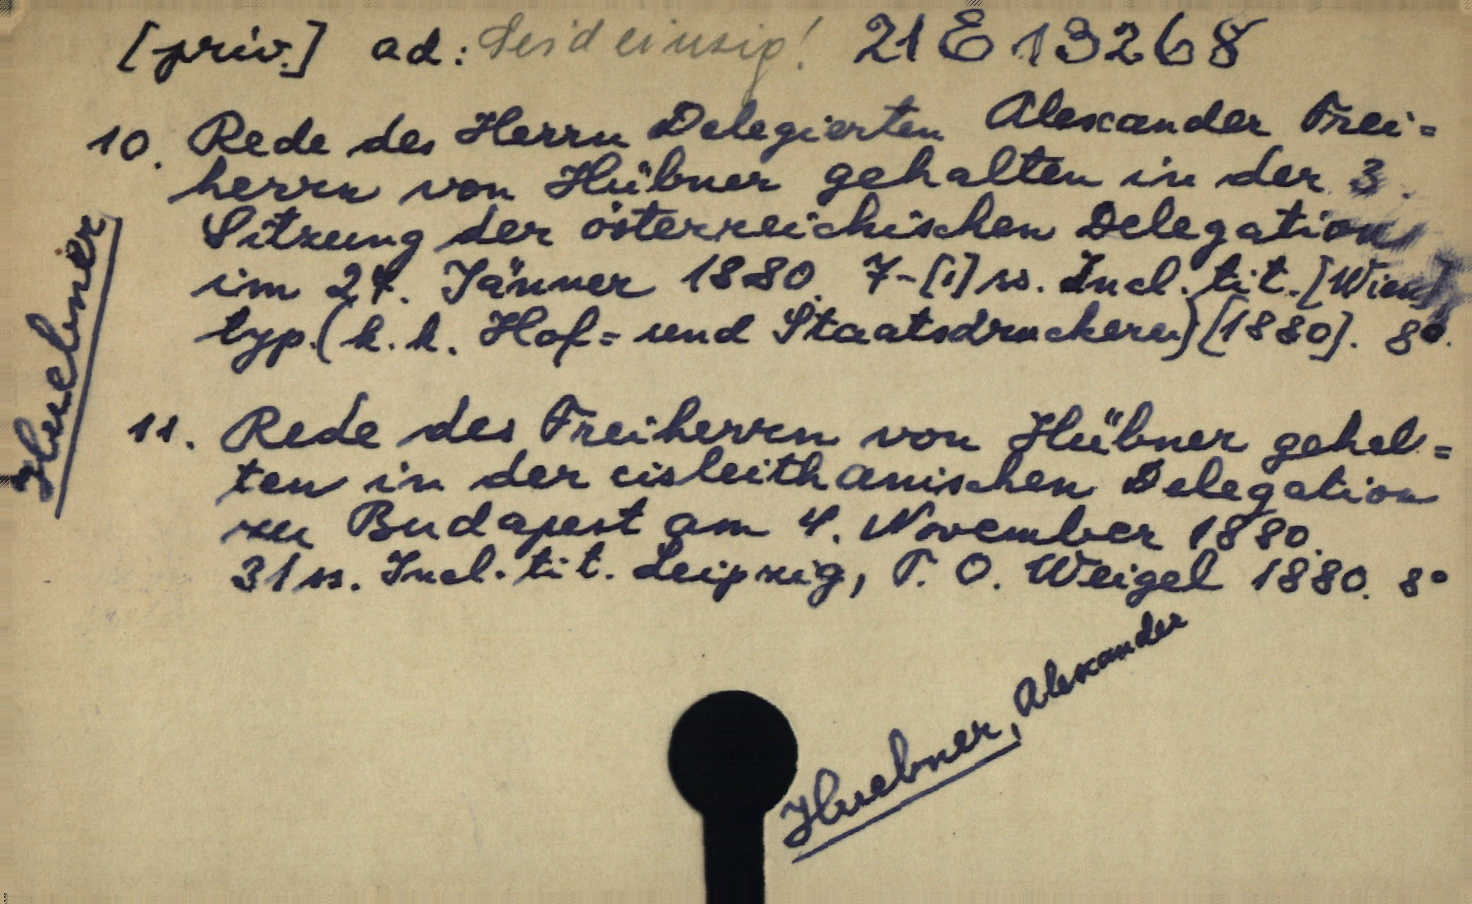 [priv.] ad: Seid einzig! 21 E 13268
10. Rede des Herrn Delegierten Alexander Frei=
herrn von Hübner gehalten in der 3.
Sitzung der österreichischen Delegation
im 27. Jänner 1880. 7-[1] ss. Incl. tit. [Wien]
typ. (k. k. Hof= und Staatsdruckerei) [1880]. 8°.
Huebner
11. Rede des Freiherrn von Hübner gehal=
ten in der cisleithanischen Delegation
zu Budapest am 4. November 1880.
31 ss. Incl. tit. Leipzig, T. O. Weigel 1880. 8°
Huebner, Alexander